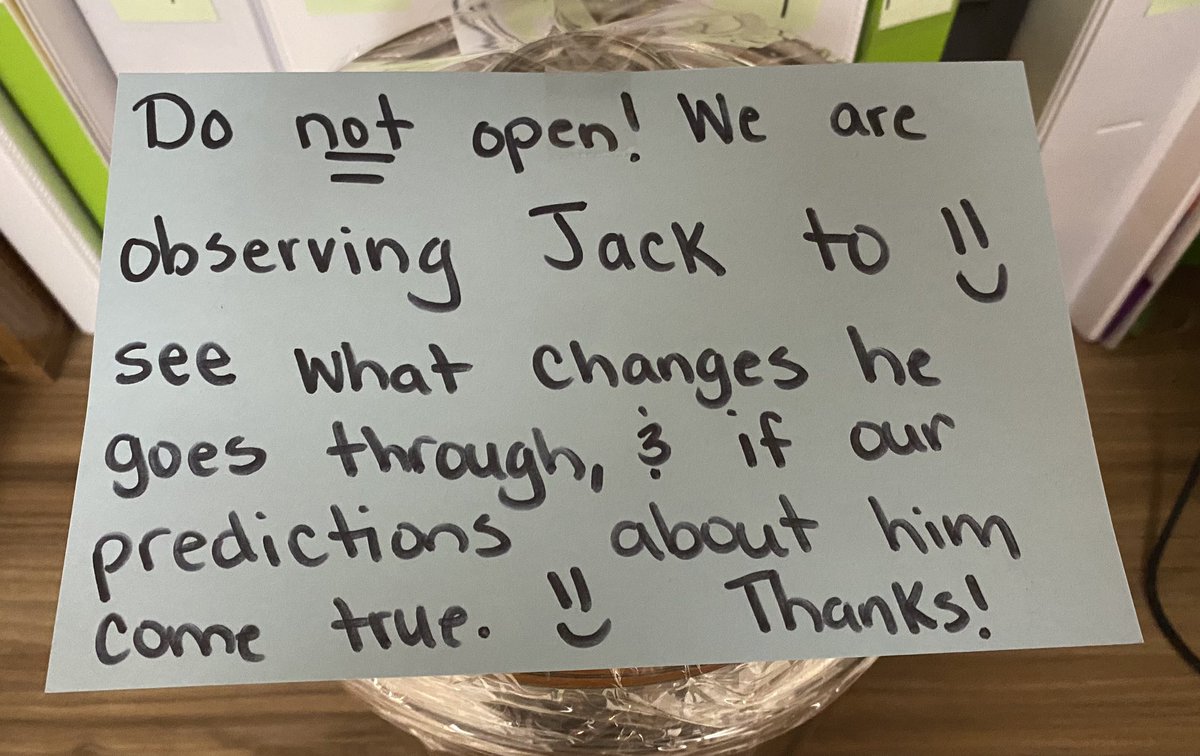 Do not open! We are
observing Jack to
see what changes he
goes through, & if our
predictions about him
come true. Thanks!